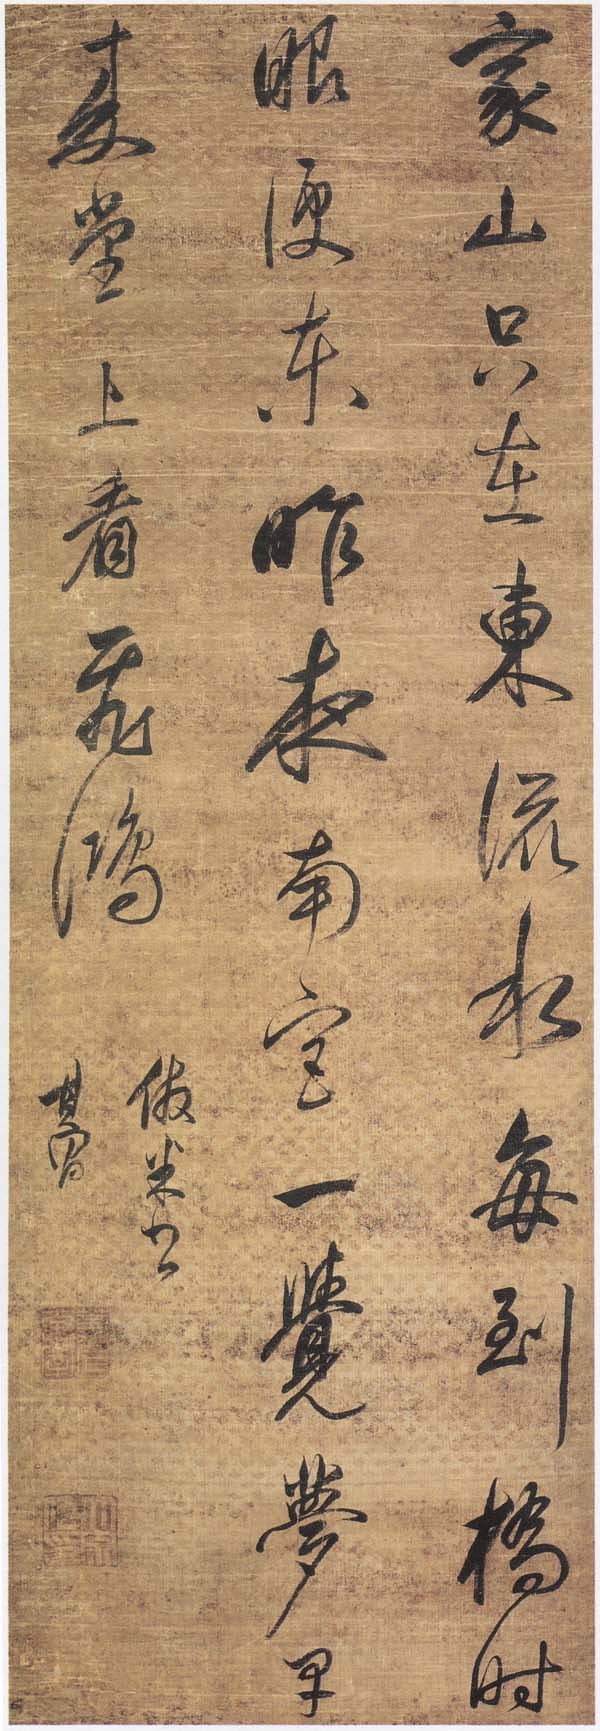 家山只在東流水每到橋時
眼便東昨夜南一覺夢早
來堂上看飛鴻
倣米書
其昌